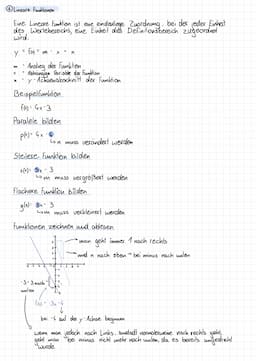 Lineare Funktionen
Eine lineare Funktion ist eine eindeutige Zuordnung, bei der jeder Einheit
des Wertebereichs, eine Einheit des Definitionsbereich zugeordnet
wird.
y = f(x) = m · x + n
m = Anstieg der Funktion
x = Abhängige Variable der Funktion
n = y-Achsenabschnitt der Funktion
Beispielfunktion
f(x) = 4x - 3
Paralele bilden
p(x) = 4x -
n muss verändert werden
Steilere Funktion bilden
x - 3
m muss vergrößert werden
Flachere Funktion bilden
x - 3
m muss verkleinert werden
Funktionen zeichnen und ablesen
man geht immer 1 nach rechts
und n nach oben bei minus nach unten
-3 = 3 nach
unten
bei -6 auf der y-Achse beginnen
wenn man jedoch nach Links, anstatt normalerweise nach rechts geht,
geht man bei minus nicht mehr nach unten, da es bereits umgedreht
wurde.